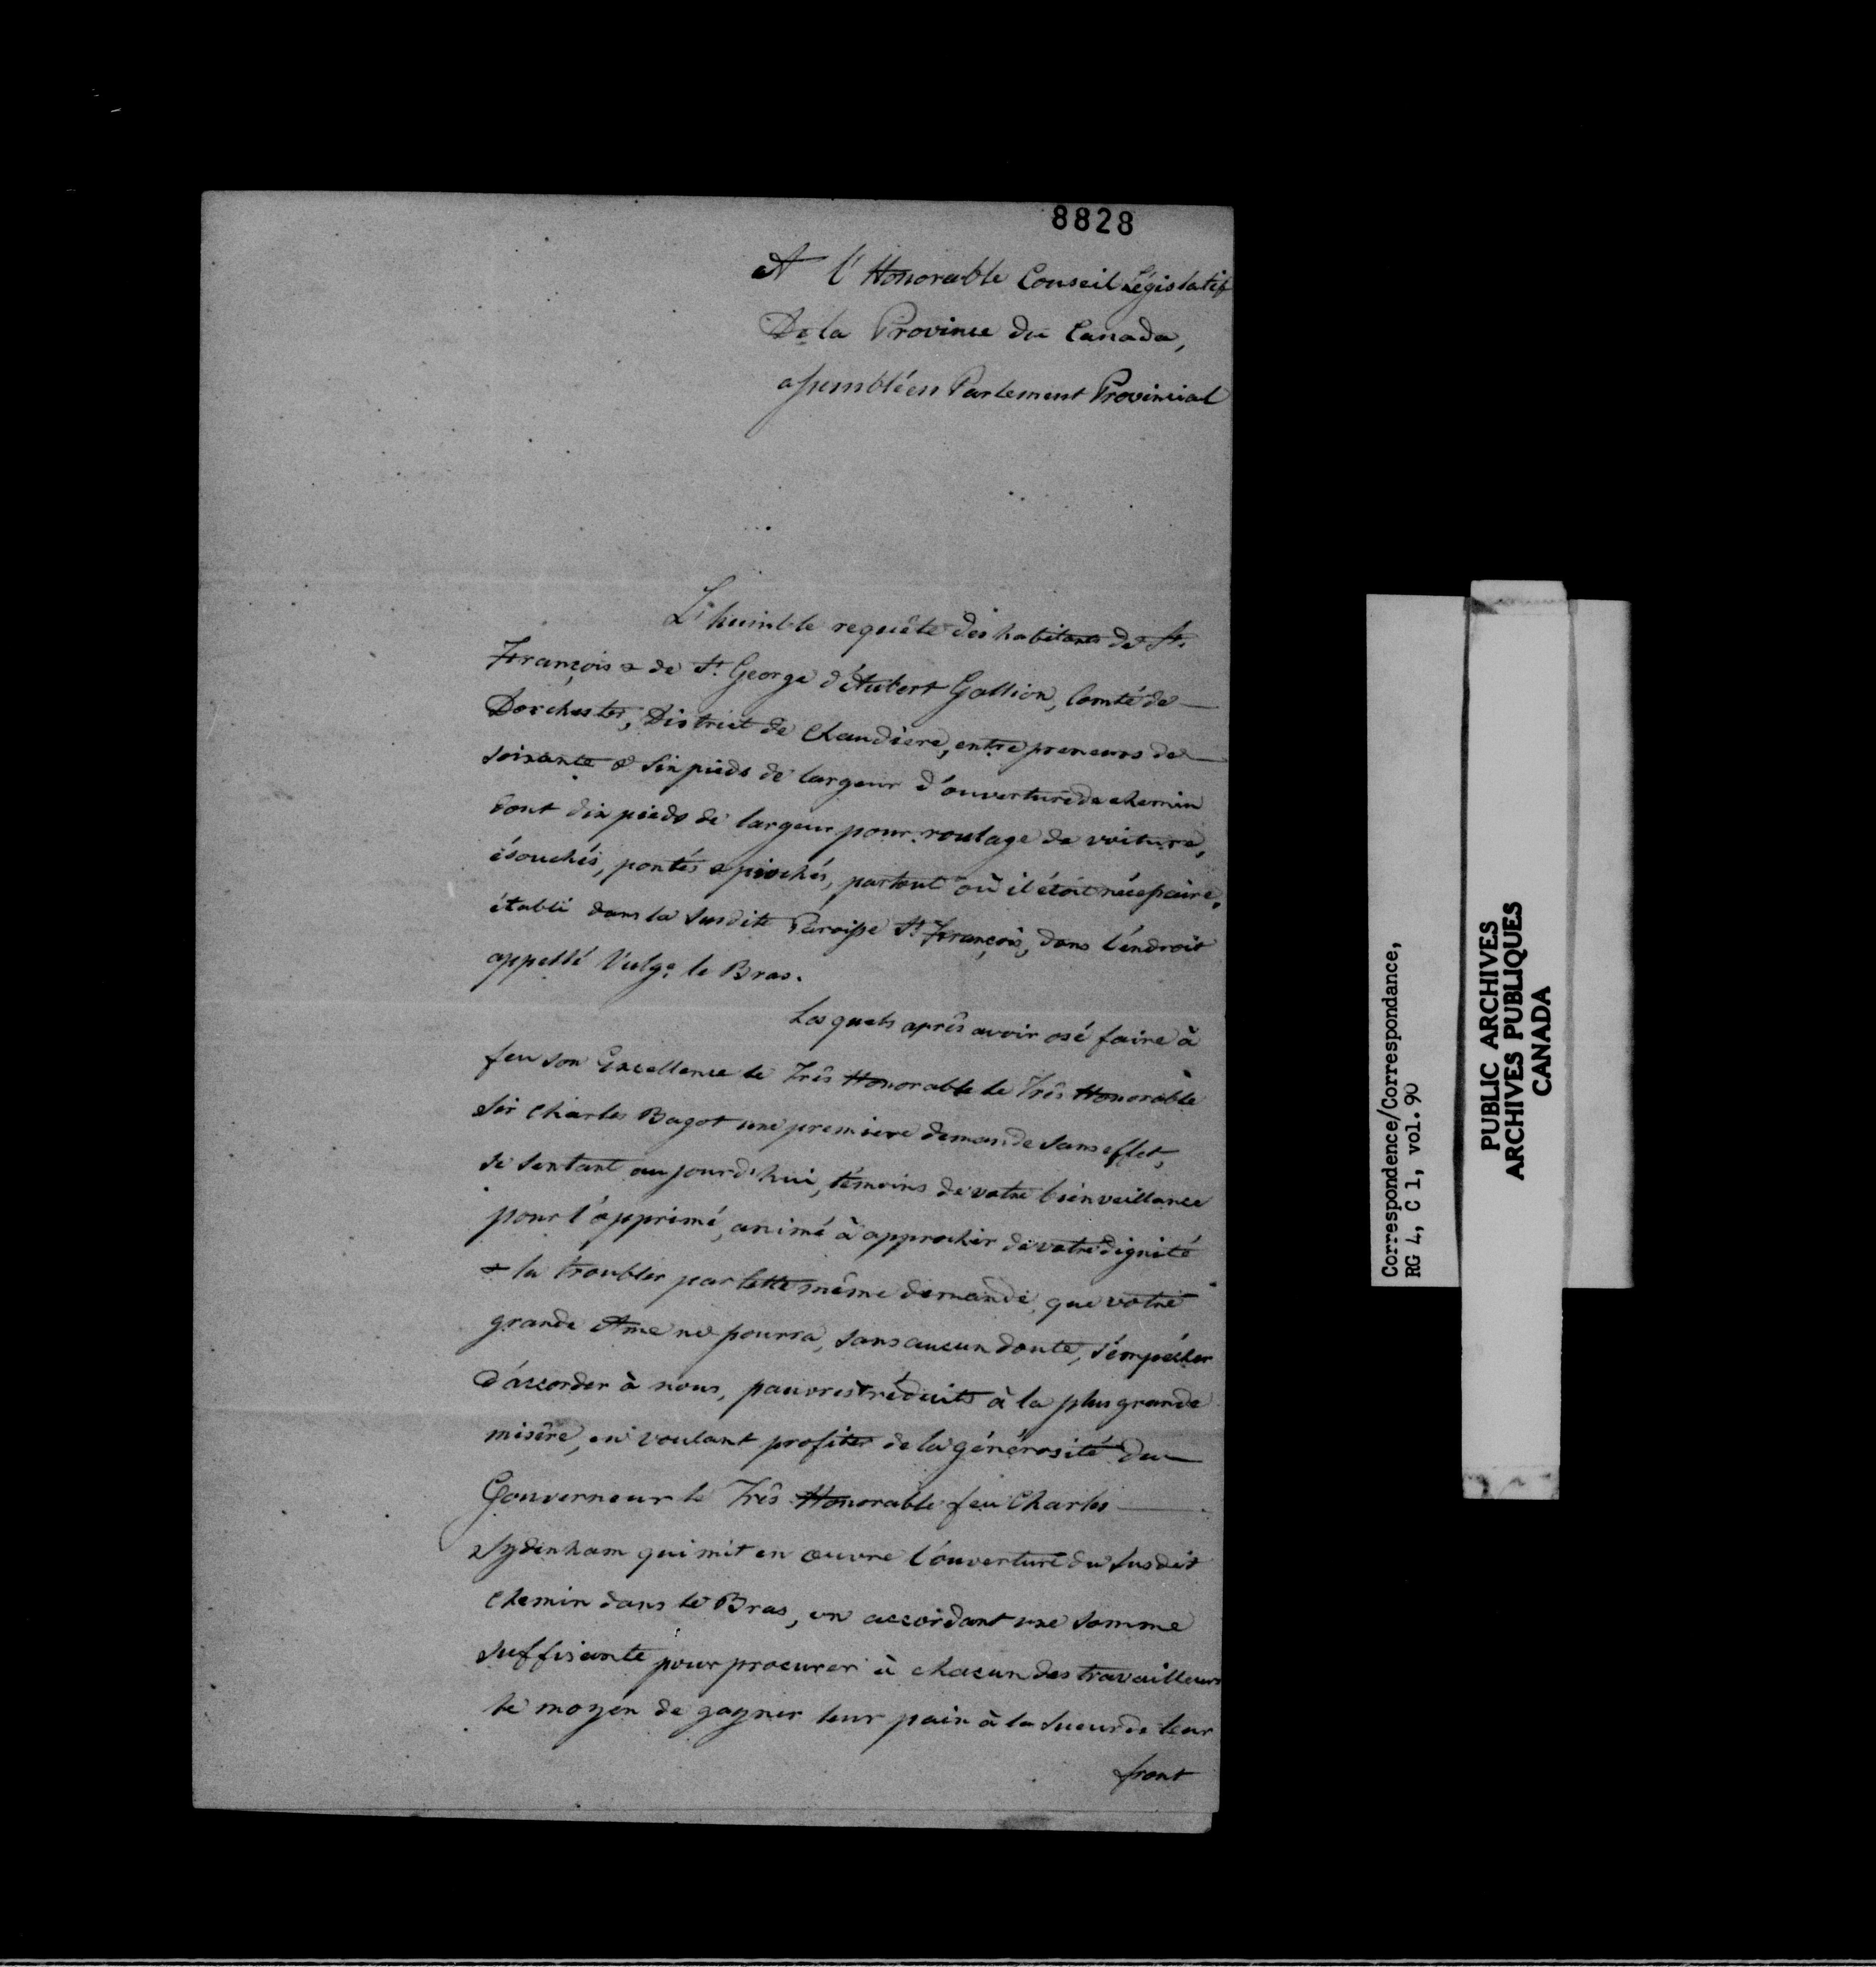 8828
A l'Honorable Conseil Législatif
De la Province du Canada,
assemblé en Parlement Provincial
L'humble requête des habitants de St.
François & de St. George d'Aubert Gallion, Comté de
Dorchester, District de Chaudiere, entrepreneurs de
soixante & six pieds de largeur d'ouverture de chemin
dont dix pieds de largeur pour roulage de voiture,
ésouchés, pontés & piochés, partout où il étoit nécessaire,
établi dans la susdite Paroisse St. François, dans l'éndroit
appellé Vulg: le Bras.
Lesquels après avoir osé faire à
feu son Excellence le Très Honorable le Très Honorable
Sir Charles Bagot une premiere demande sans effet,
se sentant aujourd'hui, témoins de votre bienveillance
pour l'opprimé, animé à approcher de votre dignité
& la troubler par cette même demande, que votre
grande Ame ne pourra, sans aucun doute, s'émpécher
d'áccorder à nous, pauvres réduits à la plus grande
misère, en voulant profiter de la générosité du
Gouverneur le Très Honorable feu Charles
Sydenham qui mit en œuvre l'ouverture du susdit
chemin dans le Bras, en accordant une somme
suffisante pour procurer à chacun des travailleurs
le moyen de gagner leur pain à la sueur de leur
front
Correspondence/Correspondance,
RG 4, C 1, vol. 90
PUBLIC ARCHIVES
ARCHIVES PUBLIQUES
CANADA